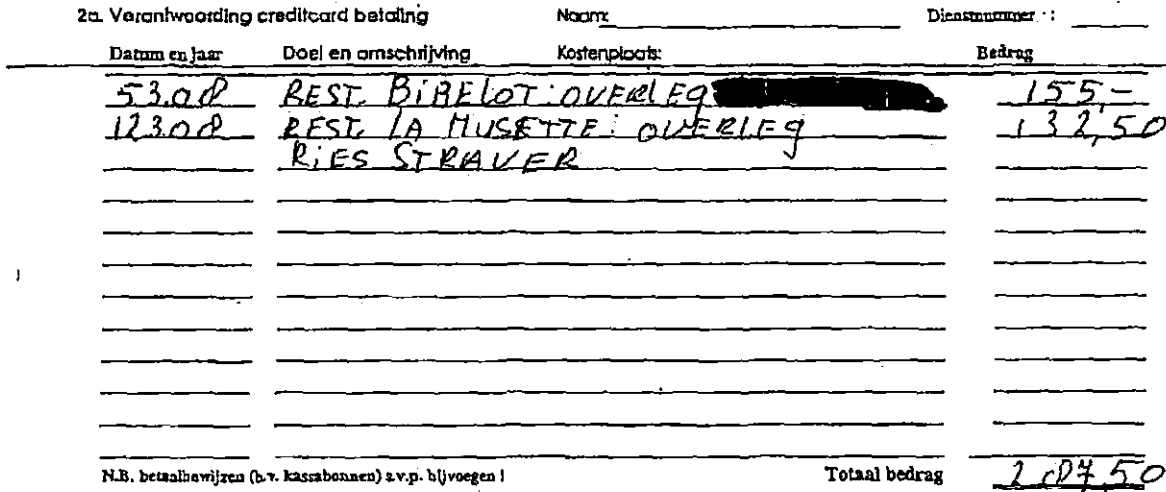 2a. Verantwoording creditcard betaling Naam: Dienstnummer :
Datum en jaar Doel en omschrijving Kostenplaats: Bedrag
5 3.08 REST. BiBELOT: OVERLEG 155,-
12 3.08 REST. LA MUSETTE: OVERLEG 132,50
RiES STRAVER
N.B. betaalbewijzen (b.v. kassabonnen) s.v.p. bijvoegen ! Totaal bedrag 287,50